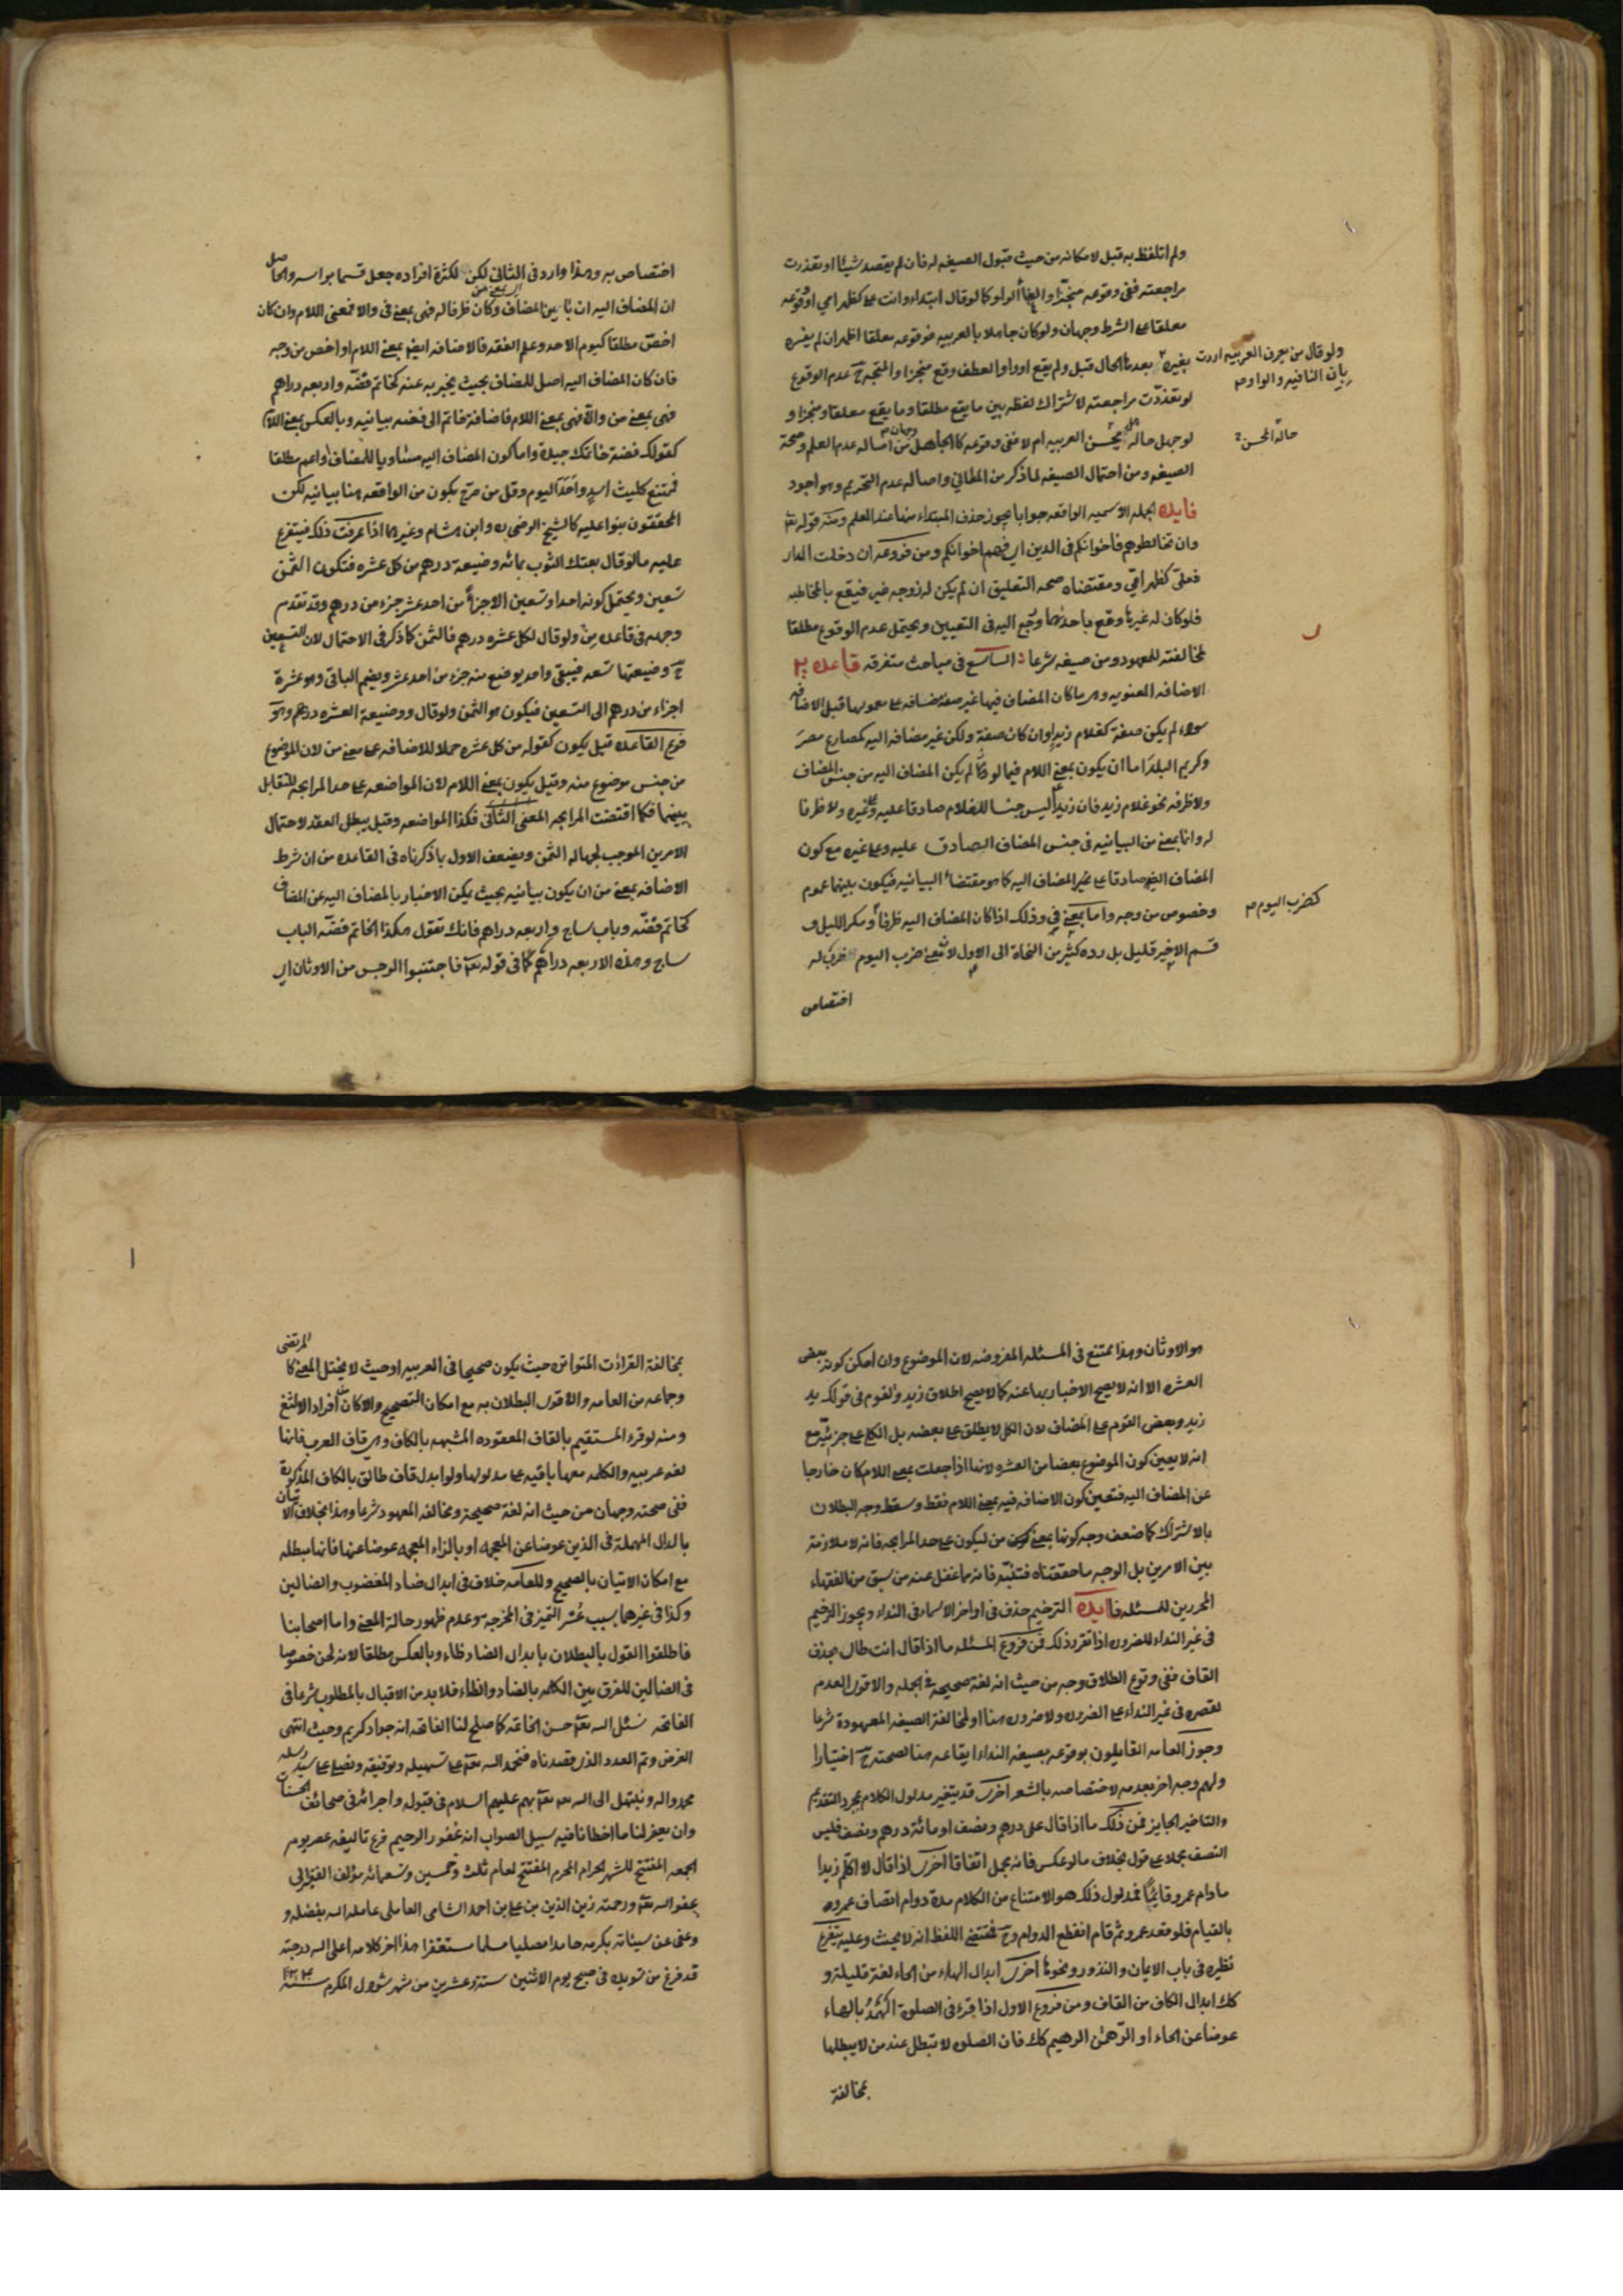 ولم اتلفظ به قبل لامكانه من حيث قبول الصيغه له فان لم يقصد شيئا او تعذرت
مراجعته ففى وقوعه منجزا والغا الواو كما لو قال ابتداء وانت على كظهر امى او وقوعه
معلقا على الشرط وجهان ولو كان جاهلا بالعربيه فوقوعه معلقا اظهر ان لم يفسره
بغيره بعد هذا الحال قبل ولم يقع او واو العطف وقع منجزا والمتجه ح عدم الوقوع
ولو قال من يعرف العربيه اردت
بان النافيه والواو م
لو تعذرت مراجعته لاشتراك لفظه بين ما يقع مطلقا وما يقع معلقا ومنجزا و
لو جهل حاله هل يحسن العربيه ام لا ففى وقوعه كالجاهل وجهان من اصاله عدم العلم وصحة
حالة المحسن
الصيغه ومن احتمال الصيغه لما ذكر من المطالى واصاله عدم التحريم وهو اجود
فايده الجمله الاسميه الواقعه جوابا يجوز حذف المبتداء منها عند العلم ومنه قوله تعا
وان تخالطوهم فاخوانكم فى الدين اى فهم اخوانكم ومن فروعه ان دخلت الدار
فعلى كظهر امى ومقتضاه صحه التعليق ان لم يكن له زوجه غيره فيقع بالمخاطبه
فلو كان له غيرها وقع باحدهما ورجع اليه فى التعيين ويحتمل عدم الوقوع مطلقا
لمخالفته للمعهود من صيغه شرعا الباب التاسع فى مباحث متفرقه قاعده
الاضافه المعنويه وهى ما كان المضاف فيها غير صفة مضافه الى معمولها قبل الاضافه
سواء لم يكن صفة كغلام زيد او ان كان صفة ولكن غير مضافه اليه كمصارع مصر
وكريم البلد اما ان يكون بمعنى اللام فيما لو لم يكن المضاف اليه من جنس المضاف
ولا ظرفه نحو غلام زيد فان زيدا ليس جنسا للغلام صادقا عليه وعلى غيره ولا ظرفا
له واما بمعنى من البيانيه فى جنس المضاف الصادق عليه وعلى غيره مع كون
المضاف ايضا صادقا على غير المضاف اليه كما هو مقتضا البيانيه فيكون بينهما عموم
وخصوص من وجه واما بمعنى فى وذلك اذا كان المضاف اليه ظرفا ومكر الليل و
كضرب اليوم م
قسم الاخير قليل بل رده كثير من النحاة الى الاول لان معنى ضرب اليوم ضرب له
اختصاص
اختصاص به وهذا وارد فى الثانى لكن لكثرة افراده جعل قسما براسه والحاصل
ان المضاف اليه ان باين المضاف وكان ظرفا له فهى بمعنى فى والا فمعنى اللام وان كان
اخص مطلقا كيوم الاحد وعلم الفقه فالاضافه ايضا بمعنى اللام او اخص من وجه
فان كان المضاف اليه اصل للمضاف بحيث يخبر به عنه كخاتم فضه واربعه دراهم
فهى بمعنى من والا فهى بمعنى اللام فاضافة خاتم الى فضه بيانيه وبالعكس بمعنى اللام
كقولك فضة خاتمك جيدة واما كون المضاف اليه مساويا للمضاف او اعم مطلقا
فممتنع كليث اسد واحد اليوم وقل من صرح بكون من الواقعه هنا بيانيه لكن
المحققون بنوا عليه كالشيخ الرضى ره وابن هشام وغيرهما اذا عرفت ذلك فيتفرع
عليه ما لو قال بعتك الثوب بمائه وضيعة درهم من كل عشره فتكون الثمن
تسعين ويحتمل كونه احدا وتسعين الا جزءا من احد عشر جزء من درهم وقد تقدم
وجهه فى قاعده من ولو قال لكل عشره درهم فالثمن كما ذكر فى الاحتمال لان التسعين
ح وضيعتها تسعه فيبقى واحد يوضع منه جزء من احد عشر ويضم الباقى وهو عشرة
اجزاء من درهم الى التسعين فيكون هو الثمن ولو قال ووضيعة العشره درهم وهو
فرع القاعده قيل يكون كقوله من كل عشره حملا للاضافه على معنى من لان الموضوع
من جنس موضوع منه وقيل يكون بمعنى اللام لان المواضعه على حد المرابحه للتقابل
بينهما فكما اقتضت المرابحه المعنى الثانى فكذا المواضعه وقيل يبطل العقد لاحتمال
الامرين الموجب لجهاله الثمن ويضعف الاول بما ذكرناه فى القاعده من ان شرط
الاضافه بمعنى من ان يكون بيانيه بحيث يمكن الاخبار بالمضاف اليه عن المضاف
كخاتم فضه وباب ساج واربعه دراهم فانك تقول هكذا الخاتم فضه الباب
ساج وهذه الاربعه دراهم كما فى قوله تعا فاجتنبوا الرجس من الاوثان اى
هو الاوثان وهذا ممتنع فى المسئله المفروضه لان الموضوع وان امكن كونه بعض
العشره الا انه لا يصح الاخبار بها عنه كما لا يصح اطلاق زيد والقوم فى قولك يد
زيد وبعض القوم على المضاف لان الكل لا يطلق على بعضه بل الكلى على جزئيه مع
انه لا يعين كون الموضوع بعضا من العشره لانها اذا جعلت بمعنى اللام كان خارجا
عن المضاف اليه فتعين كون الاضافه فيه بمعنى اللام فقط وسقط وجه البطلان
بالاشتراك كما ضعف وجه كونها بمعنى من ليكون على حد المرابحه فانه لا ملازمة
بين الامرين بل الوجه ما حققناه فتنبه فانه مما غفل عنه من سبق من الفقهاء
المحررين للمسئله فايده الترخيم حذف فى اواخر الاسماء فى النداء ويجوز الترخيم
فى غير النداء للضروره اذا تقرر ذلك فمن فروع المسئله ما اذا قال انت طال بحذف
القاف ففى وقوع الطلاق وجه من حيث انه لغة صحيحة فى الجمله والاقوى العدم
لقصره فى غير النداء على الضروره ولا ضروره هنا او لمخالفة الصيغه المعهودة شرعا
وجوز العامه القايلون بوقوعه بصيغه النداء ايقاعه هنا لصحته ح اختيارا
ولهم وجه اخر بعدمه لاختصاصه بالشعر اخرى قد يتغير مدلول الكلام بمجرد التقديم
والتاخير الجايز فمن ذلك ما اذا قال على درهم ونصف او مائة درهم ونصف فليس
النصف مجملا على قول بخلاف ما لو عكس فانه مجمل اتفاقا اخرى اذا قال لا اكلم زيدا
ما دام عمرو قايما فمدلول ذلك هو الامتناع من الكلام مدة دوام اتصاف عمرو
بالقيام فلو قعد عمرو ثم قام انقطع الدوام وح فمقتضى اللفظ انه لا يحنث وعليه يتفرع
نظيره فى باب الايمان والنذور ونحوها اخرى ابدال الهاء من الحاء لغة قليلة و
كك ابدال الكاف من القاف ومن فروع الاول اذا قرء فى الصلوة الهمد بالهاء
عوضا عن الحاء او الرهمن الرهيم كك فان الصلوه لا تبطل عند من لا يبطلها
بمخالفة
بمخالفة القراءت المتواتره حيث يكون صحيحا فى العربيه او حيث لا يختل المعنى كالمرتضى
وجماعه من العامه والاقوى البطلان به مع امكان التصحيح والا كان من افراد الالثغ
ومنه لو قرء المستقيم بالقاف المعقوده المشبهه بالكاف وهى قاف العرب فانها
لغه عربيه والكلمه معها باقيه على مدلولها ولو ابدل قاف طالق بالكاف المذكورة
ففى صحته وجهان من حيث انه لغة صحيحة ومخالفة المعهود شرعا وهذا بخلاف الاتيان
بالدال المهملة فى الذين عوضا عن المعجمه او بالزاء المعجمه عوضا عنها فانها مبطله
مع امكان الاتيان بالصحيح وللعامه خلاف فى ابدال ضاد المغضوب والضالين
وكذا فى غيرها بسبب عسر التميز فى المخرج وعدم ظهور حالة المعنى واما اصحابنا
فاطلقوا القول بالبطلان بابدال الضاد ظاء وبالعكس مطلقا لانه لحن خصوصا
فى الضالين للفرق بين الكلمه بالضاد والظاء فلا بد من الاقبال بالمطلوب شرعا فى
الفاتحه نسئل الله تعا حسن الخاتمه كما صلح لنا الفاتحه انه جواد كريم وحيث انتهى
الغرض وتم العدد الذى قصدناه فنحمد الله تعا على تسهيله وتوفيقه ونصلى على سيد رسله
محمد واله ونبتهل الى الله تعا بهم عليهم السلام فى قبوله واجرائه فى صحائف الحسنات
وان يغفر لنا ما اخطانا فيه سبيل الصواب انه غفور الرحيم فرغ تاليفه عصر يوم
الجمعه المفتتح للشهر الحرام المحرم المفتتح لعام ثلث وخمسين وتسعمائه مؤلفه الفقير الى
عفو الله تعا ورحمته زين الدين بن على بن احمد الشامى العاملى عامله الله بفضله و
وعفى عن سيئاته بكرمه حامدا مصليا مسلما مستغفرا هذا اخر كلامه اعلى الله درجته
قد فرغ من تسويده فى صبح يوم الاثنين ستة وعشرين من شهر شوال المكرم سنة